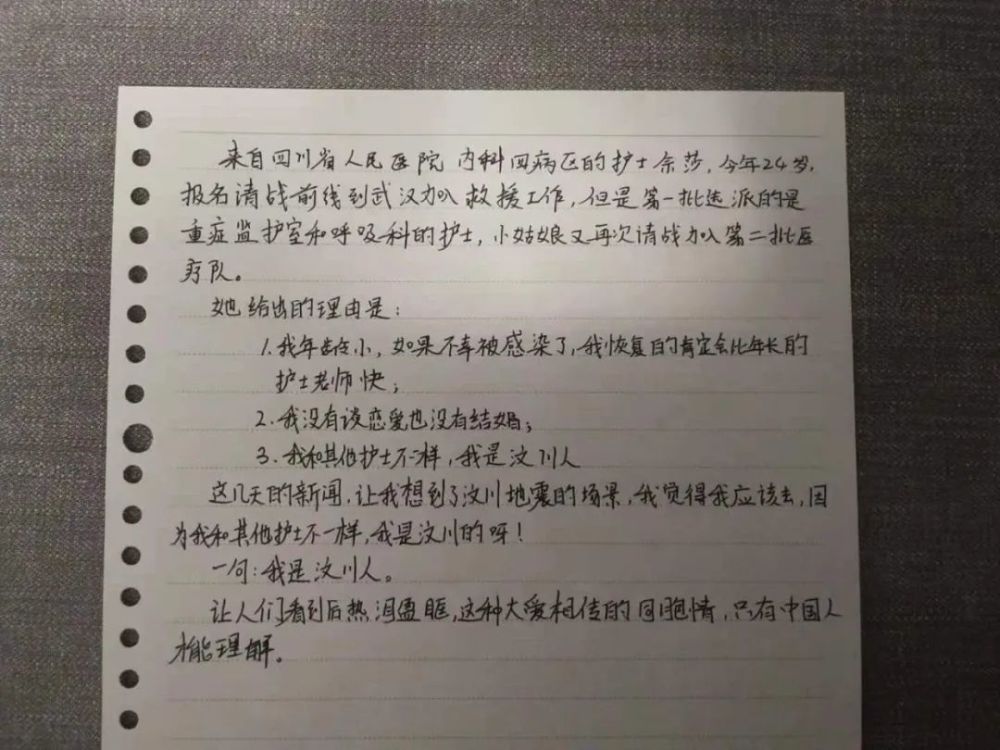 来自四川省人民医院内科四病区的护士佘莎，今年24岁，
报名请战前线到武汉加入救援工作，但是第一批选派的是
重症监护室和呼吸科的护士，小姑娘又再次请战加入第二批医
疗队。
她给出的理由是：
1.我年龄小，如果不幸被感染了，我恢复的肯定会比年长的
护士老师快；
2.我没有谈恋爱也没有结婚；
3.我和其他护士不一样，我是汶川人
这几天的新闻，让我想到了汶川地震的场景，我觉得我应该去，因
为我和其他护士不一样，我是汶川的呀！
一句：我是汶川人。
让人们看到后热泪盈眶，这种大爱相传的同胞情，只有中国人
才能理解。